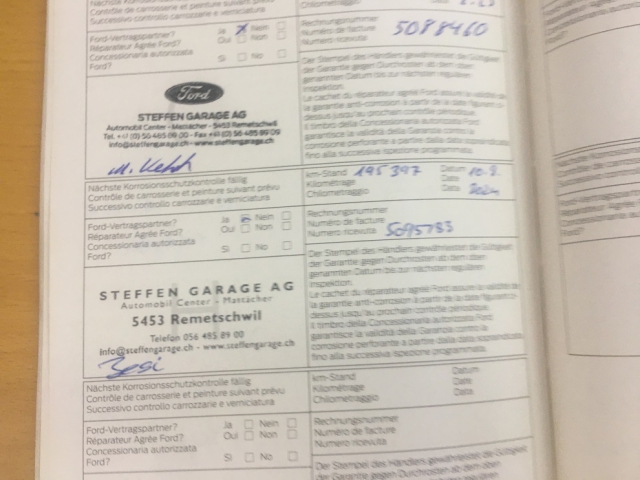 Nächste Korrosionsschutzkontrolle fällig
Contrôle de carrosserie et peinture suivant prévu
Successivo controllo carrozzerie e verniciatura
Chilometraggio Data
Ford-Vertragspartner? Ja X Nein
Réparateur Agrée Ford? Oui Non
Concessionaria autorizzata Ford? Si No
Rechnungsnummer
Numéro de facture 5088460
Numero ricevuta
Der Stempel des Händlers gewährleistet die Gültigkeit
der Garantie gegen Durchrosten ab dem oben
genannten Datum bis zur nächsten regulären
Inspektion.
Le cachet du réparateur agréé Ford assure la validité de
la garantie anti-corrosion à partir de la date figurant ci-
dessus jusqu'au prochain contrôle périodique.
Il timbro della Concessionaria Ford
garantisce la validità della Garanzia contro la
corrosione perforante a partire dalla data sopraindicata
fino alla successiva ispezione programmata.
Ford
STEFFEN GARAGE AG
Automobil Center - Mastächer - 5453 Remetschwil
info@steffengarage.ch - www.steffengarage.ch
Nächste Korrosionsschutzkontrolle fällig
Contrôle de carrosserie et peinture suivant prévu
Successivo controllo carrozzerie e verniciatura
km-Stand 195397 Datum
Kilométrage Date
Chilometraggio Data
Ford-Vertragspartner? Ja Nein
Réparateur Agrée Ford? Oui Non
Concessionaria autorizzata Ford? Si No
Rechnungsnummer
Numéro de facture
Numero ricevuta 5095783
Der Stempel des Händlers gewährleistet die Gültigkeit
der Garantie gegen Durchrosten ab dem oben
genannten Datum bis zur nächsten regulären
Inspektion.
Le cachet du réparateur agréé Ford assure la validité de
la garantie anti-corrosion à partir de la date figurant ci-
dessus jusqu'au prochain contrôle périodique.
Il timbro della Concessionaria Ford
garantisce la validità della Garanzia contro la
corrosione perforante a partire dalla data sopraindicata
fino alla successiva ispezione programmata.
STEFFEN GARAGE AG
Automobil Center - Mastächer
5453 Remetschwil
Telefon 056 485 89 00
Info@steffengarage.ch - www.steffengarage.ch
Nächste Korrosionsschutzkontrolle fällig
Contrôle de carrosserie et peinture suivant prévu
Successivo controllo carrozzerie e verniciatura
km-Stand Datum
Kilométrage Date
Chilometraggio Data
Ford-Vertragspartner? Ja Nein
Réparateur Agrée Ford? Oui Non
Concessionaria autorizzata Ford? Si No
Rechnungsnummer
Numéro de facture
Numero ricevuta
Der Stempel des Händlers gewährleistet die Gültigkeit
der Garantie gegen Durchrosten ab dem oben